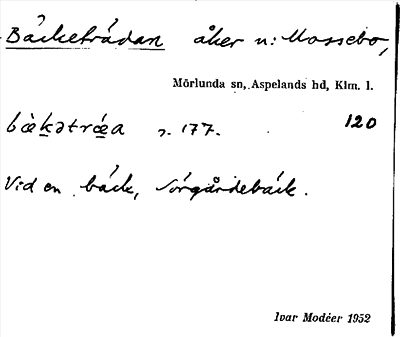 Bäcketrådan åker n: Mossebo,
Mörlunda sn, Aspelands hd, Klm. l.
bæ̀k̯ətrǿ̯a s. 177. 120
Vid en bäck, Sörgårdebäck.
Ivar Modéer 1952